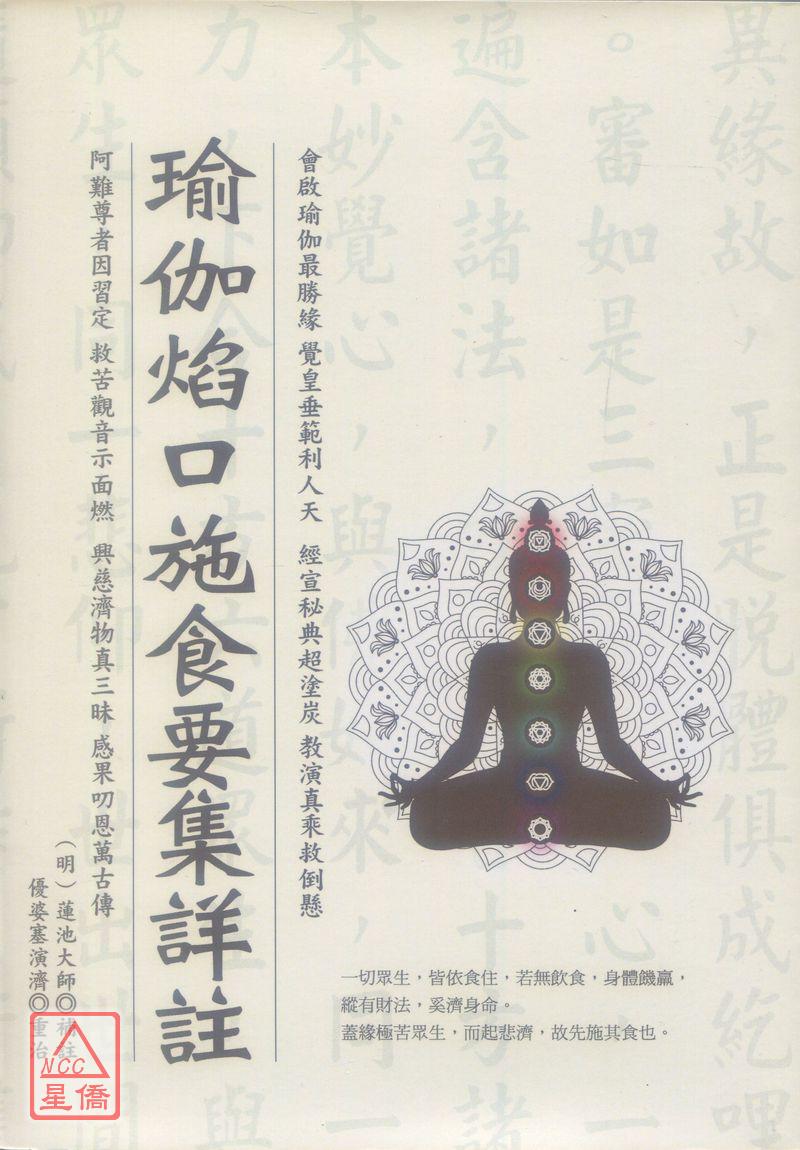 會啟瑜伽最勝緣 覺皇垂範利人天 經宣秘典超塗炭 教演真乘救倒懸
瑜伽焰口施食要集詳註
阿難尊者因習定 救苦觀音示面燃 興慈濟物真三昧 感果叨恩萬古傳
（明）蓮池大師◎補註
優婆塞演濟◎重治
一切眾生，皆依食住，若無飲食，身體饑羸，
縱有財法，奚濟身命。
蓋緣極苦眾生，而起悲濟，故先施其食也。
異緣故，正是脫體俱成紇哩
。審如是三
心
一
遍含諸法，
十方諸
本妙覺心，與
如來，同一
力
與
眾生
悲仰
NCC
星僑